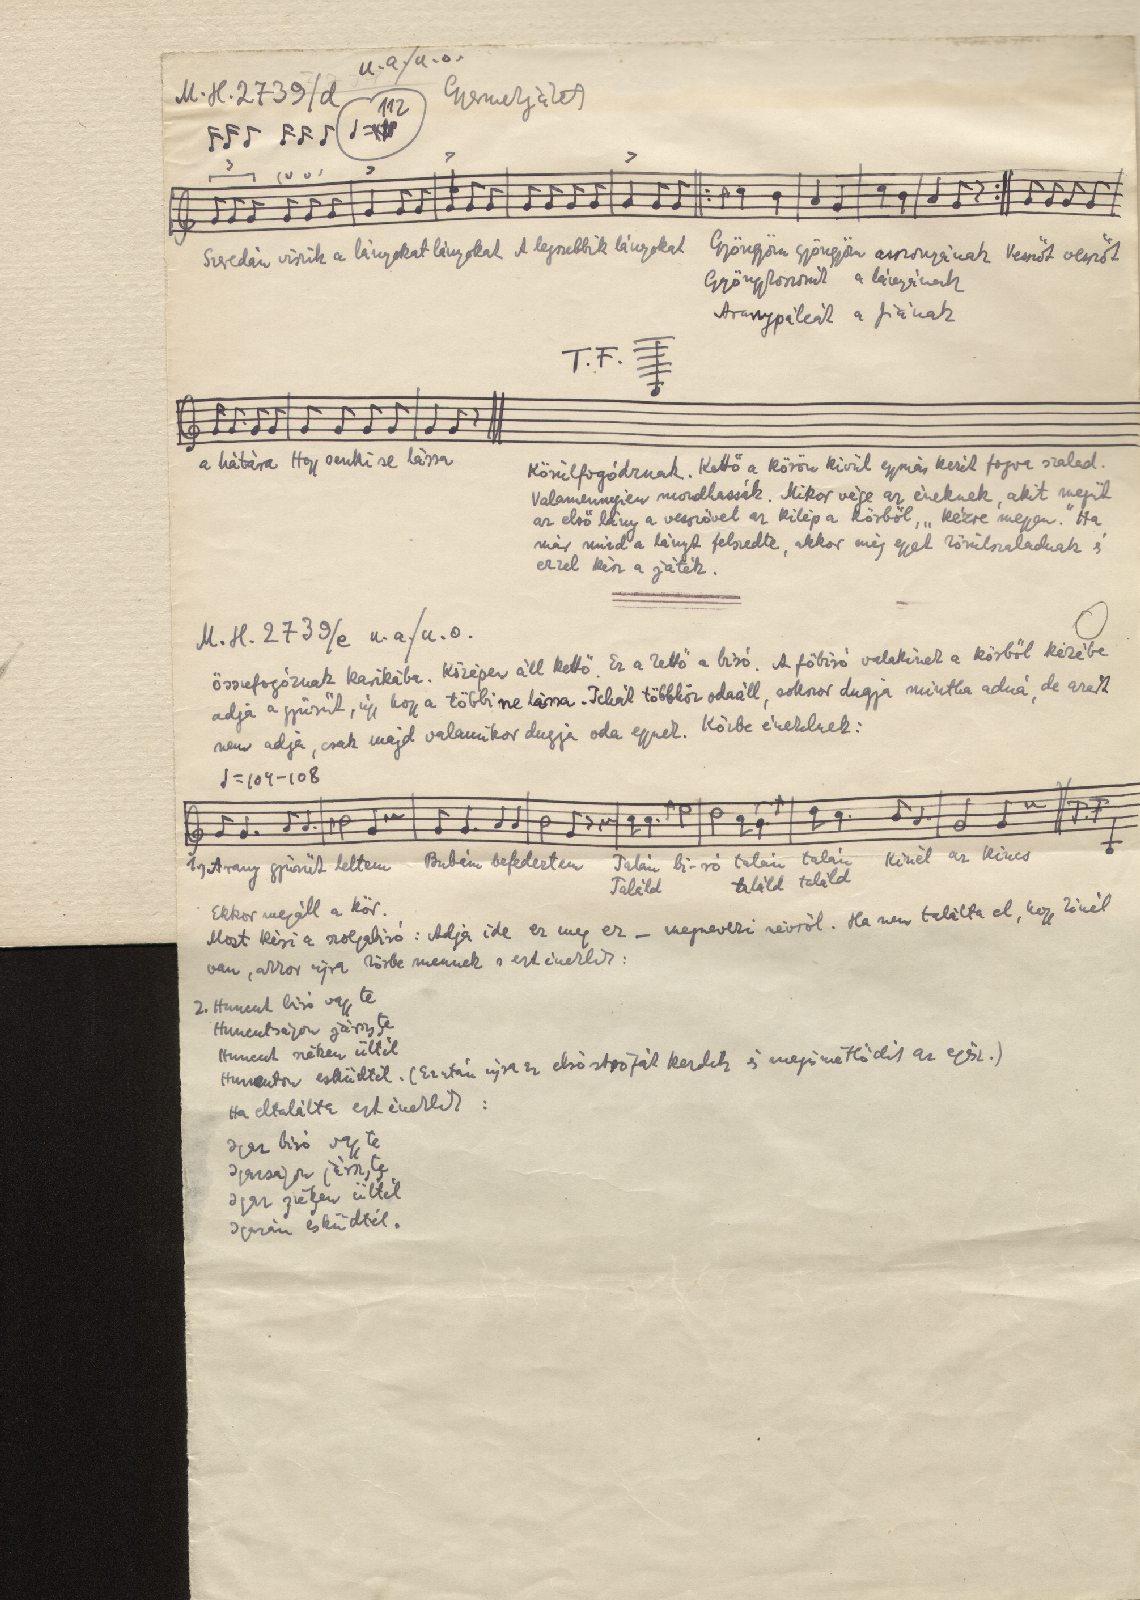 u.a./u.o.
M.H.2739/d
Gyermekjáték
112
Szredán viszik a lányokat lányokat A legszebbik lányokat Gyöngyöm gyöngyöm asszonyának Vesszőt vesszőt
Gyöngykoszorút a lányának
Aranypálcát a fiának
T.F.
a hátára Hogy senki se lássa
Körülfogódznak. Kettő a körön kívül egymás kezét fogva szalad.
Valamennyien mondhassák. Mikor vége az éneknek, akit megüt
az első lány a vesszővel az kilép a körből, „kézre megyen." Ha
már mind a lányt felszedte, akkor még egyet körülszaladnak s
ezzel kész a játék.
M.H. 2739/e u.a./u.o.
összefogóznak karikába. Középen áll kettő. Ez a kettő a biró. A főbiró valakinek a körből kézébe
adja a gyürüt, úgy hogy a többi ne lássa. Tehát többkör odaáll, sokszor dugja mintha adná, de azért
nem adja, csak majd valamikor dugja oda egynek. Körbe énekelnek:
♩=104-108
1, Arany gyürüt leltem Bubám befedeztem Talán bi-ró talán talán Kinél az kincs
Találd találd találd
Ekkor megáll a kör.
Most kéri a szolgabiró: Adja ide ez meg ez – megnevezi névről. Ha nem találta el, hogy kinél
van, akkor újra körbe mennek s ezt éneklik:
2. Hament biró vagy te
Hamentságon jársz te
Hament széken ültél
Hamenton esküdtél. (Ezután újra az első strófát kezdik s megismétlődik az egész.)
Ha eltalálta ezt éneklik :
Igaz biró vagy te
Igazságon jársz te
Igaz széken ültél
Igazán esküdtél.